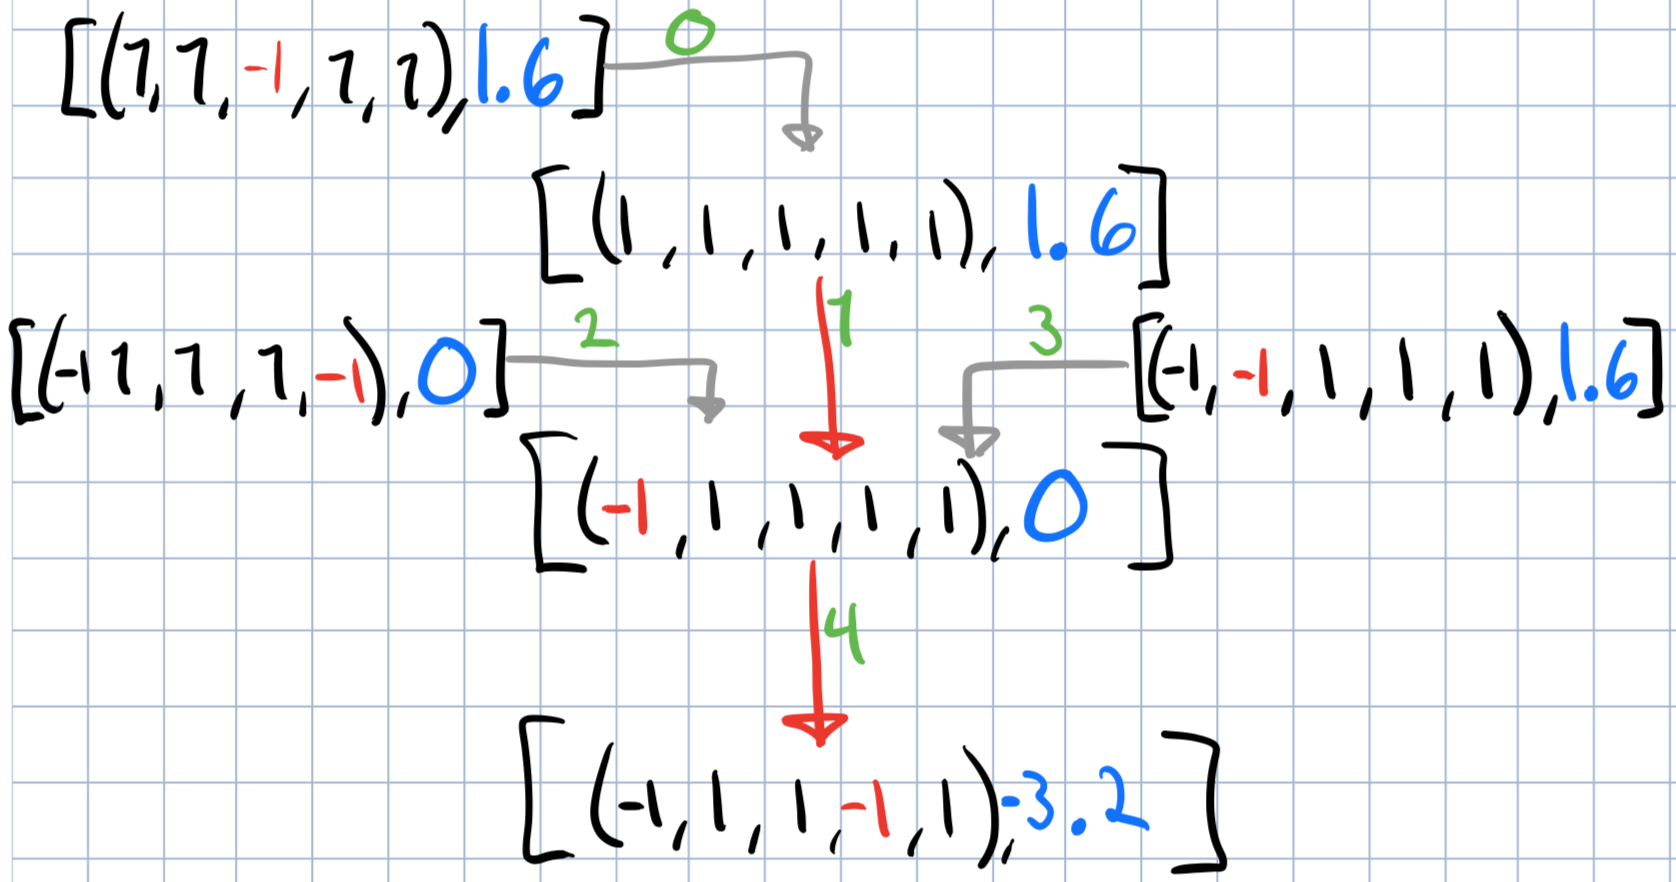 [(1,1,-1,1,1),1.6] 0
[(1,1,1,1,1),1.6]
[(-11,1,1,-1),0] 2 1 3 [(-1,-1,1,1,1),1.6]
[(-1,1,1,1,1),0]
4
[(-1,1,1,-1,1),-3.2]